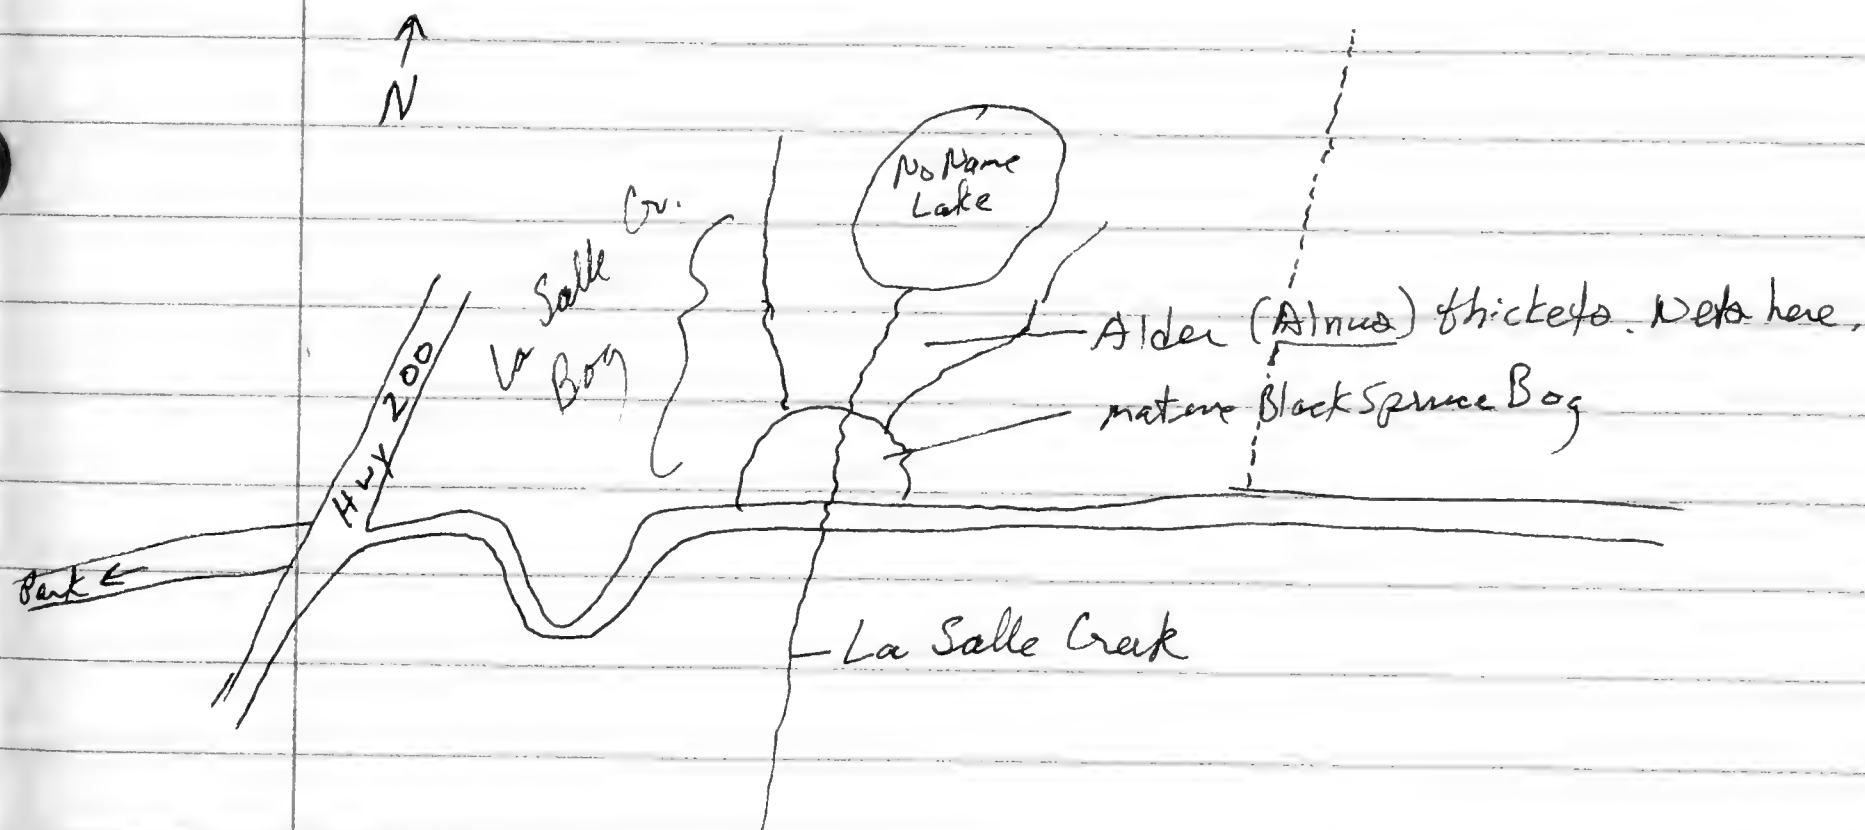 N
No Name
Lake
La Salle Cr.
Bog
Hwy 200
Alder (Alnus) thickets. Nets here.
mature Black Spruce Bog
Park
La Salle Creek